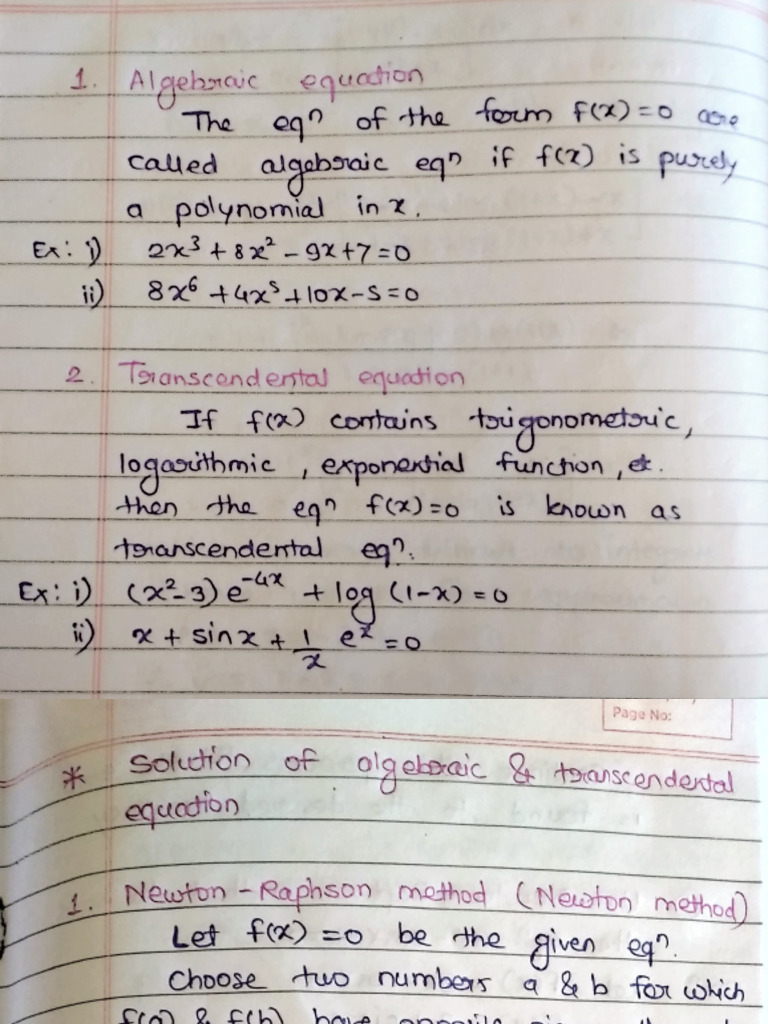 1. Algebraic equation
The eqⁿ of the form f(x)=0 are
called algebraic eqⁿ if f(x) is purely
a polynomial in x.
Ex: i) 2x³ + 8x² - 9x + 7 = 0
ii) 8x⁶ + 4x⁵ + 10x - 5 = 0
2. Transcendental equation
If f(x) contains trigonometric,
logarithmic, exponential function, etc.
then the eqⁿ f(x)=0 is known as
transcendental eqⁿ.
Ex: i) (x² - 3) e⁻⁴ˣ + log (1-x) = 0
ii) x + sinx + 1/x eˣ = 0
Page No:
* Solution of algebraic & transcendental
equation
1. Newton-Raphson method (Newton method)
Let f(x) = 0 be the given eqⁿ.
Choose two numbers a & b for which
f(a) & f(b) have opposite